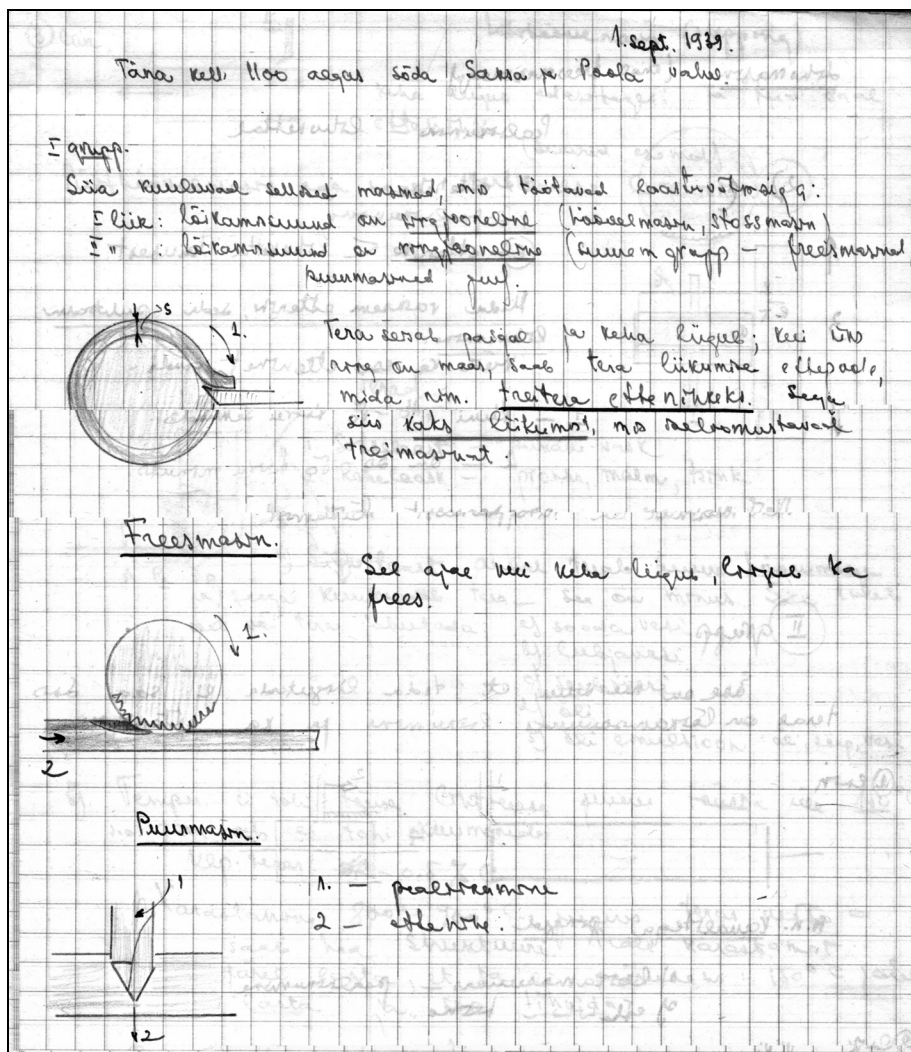 1. sept. 1939.
Täna kell 1100 algas sõda Saksa ja Poola vahel.
I grupp.
Siia kuuluvad sellised masinad, mis töötavad laastuvõtmisega:
I liik: lõikamissuund on sirgjooneline (höövelmasin, stossmasin)
II " : lõikamissuund on ringjooneline (suurem grupp – freesmasinad,
puurmasinad
s
1.
Tera seisab paigal ja keha liigub; kui üks
ring on maas, saab tera liikumise ettepoole,
mida nim. treitera ettenihkeks. Seega
siis kaks liikumist, mis iseloomustavad
treimasinat.
Freesmasin.
Sel ajal kui keha liigub, liigub ka
frees.
1.
2
Puurmasin.
1
1. — pealiikumine
2 — ettenihe.
2